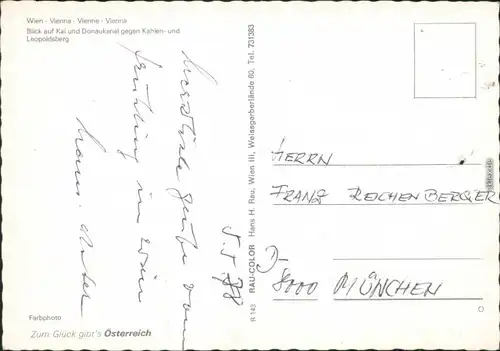 Wien - Vienna - Vienne - Vienna
Blick auf Kai und Donaukanal gegen Kahlen- und
Leopoldsberg
Herzliche Grüße vom
Frühling in Wien
5.5.78
Farbphoto
Zum Glück gibt's Österreich
R 143 RAU-COLOR Hans H. Rau, Wien III, Weissgerberlände 60, Tel. 731383
HERRN
FRANZ REICHENBERGER
D-
8000 MÜNCHEN